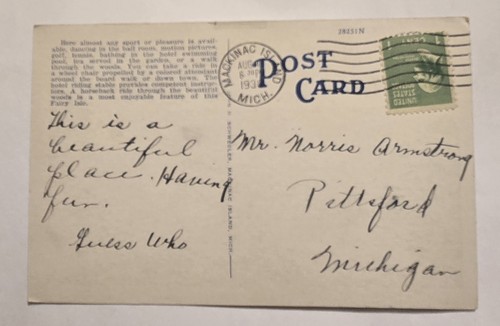 Here almost any sport or pleasure is avail-
able, dancing in the ball room, motion pictures,
golf, tennis, bathing in the hotel swimming
pool, tea served in the garden, or a walk
through the woods. You can take a ride in
a wheel chair propelled by a colored attendant
around the board walk or down town. The
hotel riding stable provides competent instruc-
tors. A horseback ride through the beautiful
woods is a most enjoyable feature of this
Fairy Isle.
This is a
beautiful
place. Having
fun.
Guess Who
MACKINAC ISLAND
AUG
6 PM
193
MICH.
MACKINAC ISLAND, MICH.
28251N
POST
CARD
1
UNITED
STATES
POSTAGE
Mr. Norris Armstrong
Pittsford
Michigan